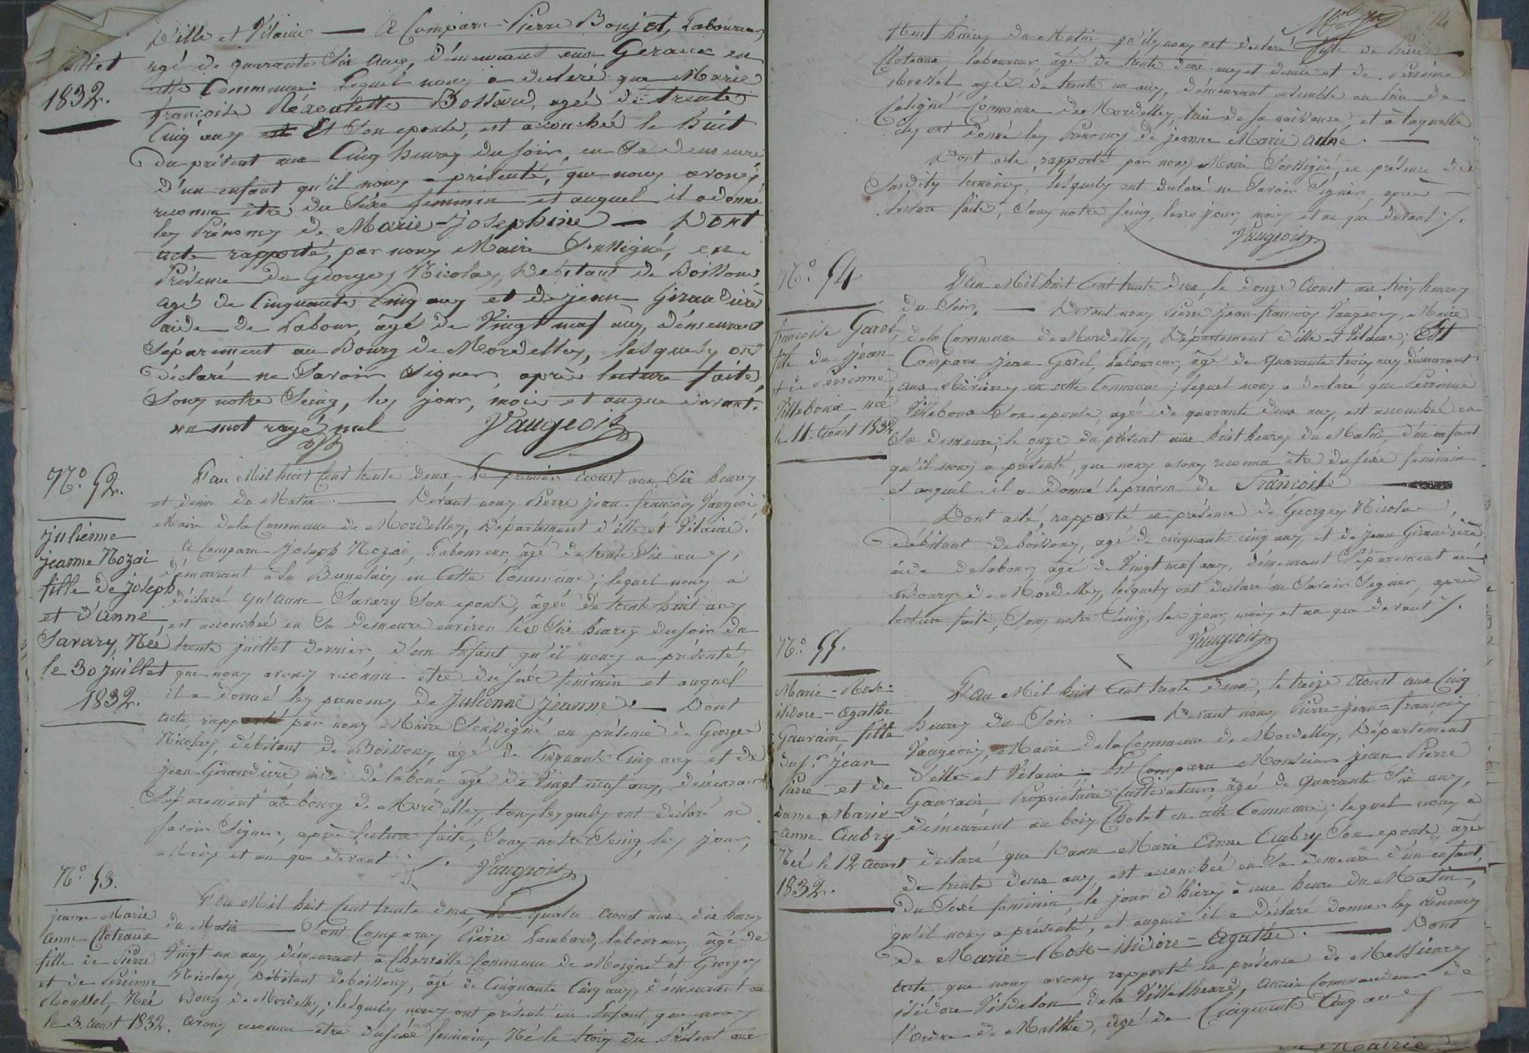 D'ille et Vilaine — A Comparu Pierre Boujet, Laboureur
agé de quarante Six ans, demeurant aux Geraux en
cette Commune Lequel nous a declaré que Marie
françoise Bossard, agée de trente
Cinq ans Et Son epouse, est acouchée le huit
du présent aux Cinq heures du Soir, en Sa demeure
d'un enfant qu'il nous a présenté, que nous avons
reconnu être du Séxe feminin et auquel il a donné
les Prénoms de Marie-Josephine — Dont
acte rapporté, par nous Maire Soussigné, en
Présence de Georges Nicolas, Debitant de Boissons
agé de Cinquante Cinq ans et de jean Giraudière
aide de Labour, âgé de Vingt neuf ans, démeurant
Séparement au Bourg de Mordelles, lesquels ont
déclaré ne Savoir Signer, après lecture faite,
Sous notre Seing, les jour, mois et an que devant.
un mot rayé nul Vaugeois
juillet
1832.
N.º 52.
julienne
jeanne Nozai
fille de joseph
et d'anne
Savary, Née
le 30 juillet
1832.
L'an Mil huit Cent trente deux le premier Aout aux Six heures
et demie du Matin — Devant nous Pierre jean françois Vaugeois
Maire de la Commune de Mordelles, Département d'ille et Vilaine.
A Comparu Joseph Nozai, Laboureur, âgé de trente Six ans,
démeurant à la en Cette Commune; lequel nous a
déclaré qu'anne Savary Son epouse, âgée de trente huit ans
est acouchée en Sa demeure environ les Six heures du Soir du
trente juillet dernier, d'un Enfant qu'il nous a présenté,
que nous avons reconnu etre du Séxe feminin et auquel
il a donné les prenoms de Julienne Jeanne. — Dont
acte, rapporté par nous Maire Soussigné en présence de George
Nicolas, débitant de Boissons, agé de Cinquante Cinq ans et de
jean Giraudière aide de labour, agé de Vingt neuf ans, démeurant
Séparement au bourg de Mordelles, tous lesquels ont déclaré ne
Savoir Signer, après lecture faite, Sous notre Seing, les jour,
Mois et an que devant. Vaugeois
N.º 53.
jeanne Marie
Anne Cloteaux
fille de Pierre
et de Perrine
Roussel, Née
le 3. aout 1832.
L'an Mil huit Cent trente deux, le quatre Aout aux dix heures
du Matin — Sont Comparus Pierre Lambard, laboureur, âgé de
Vingt un ans, démeurant à Commune de Moigné et Georges
Nicolas, Débitant de boissons, âgé de Cinquante Cinq ans, demeurant au
Bourg de Mordelles; lesquels nous ont présenté un Enfant que nous
avons reconnu etre du Séxe feminin, Né le trois du Présent aux
Neuf heures du Matin qu'ils nous ont declaré fille de Pierre
Cloteaux, laboureur âgé de trente deux ans et demie et de Perrine
Roussel agée de trente un ans, démeurant ensemble au lieu de
Commune de Mordelles, lieu de sa naissance, et a laquelle
ils ont donné les Prenoms de jeanne Marie Anne. —
Dont acte, rapporté par nous Maire Soussigné, en présence des
Susdits temoins, lesquels ont declaré ne Savoir Signer après
lecture faite, Sous notre Seing, les jour, mois et an que devant.
Vaugeois
N.º 54
françoise Garel,
fille de jean
et de Perrine
Villeboux née
le 11. Aout 1832
L'an Mil huit Cent trente deux, le douze Aout aux trois heures
du Soir. — Devant nous Pierre jean françois Vaugeois, Maire
de la Commune de Mordelles, Département d'ille et Vilaine; Est
Comparu Jean Garel, Laboureur, âgé de quarante trois ans démeurant
aux Rivières en cette Commune; lequel nous a declaré que Perrine
Villeboux Son epouse, agée de quarante deux ans, est acouchée en
Sa demeure, le onze du présent aux huit heures du Matin, d'un enfant
qu'il nous a présenté, que nous avons reconnu etre du Séxe feminin
et auquel il a donné le prénom de Françoise
Dont acté, rapporté en présence de Georges Nicolas
debitant de boissons, agé de cinquante cinq ans, et de jean Giraudière
aide de labour, agé de Vingt neuf ans, démeurant Séparement au
Bourg de Mordelles, lesquels ont declaré ne Savoir Signer, après
lecture faite, Sous notre Seing, les jour, mois et an que devant.
Vaugeois
N.º 55.
Marie-Rose-
isidore-agathe
Gaurain, fille
du S.r jean
Pierre et de
dame Marie
Anne Aubry
Née le 12 aout
1832.
L'an Mil huit Cent trente deux, le treize Aout aux Cinq
heures du Soir — Devant nous Pierre-jean-françois
Vaugeois, Maire de la Commune de Mordelles, Département
d'ille et Vilaine — Est Comparu Monsieur Jean Pierre
Gaurain, Propriétaire Cultivateur, âgé de quarante Six ans,
démeurant au bois Chotet en cette Commune; lequel nous a
declaré que Dame Marie Anne Aubry Son epouse, agée
de trente deux ans, est acouchée en Sa demeure d'un enfant,
du Séxe feminin, le jour d'hier, à une heure du Matin,
qu'il nous a présenté, et auquel il a déclaré donner les prénoms
de Marie-Rose-isidore-agathe. — Dont
acte que nous avons rapporté en présence de Messieurs
isidore Visdelou de la Villetheard, ancien Commandeur de
l'ordre de Malthe, agé de Cinquante Cinq ans